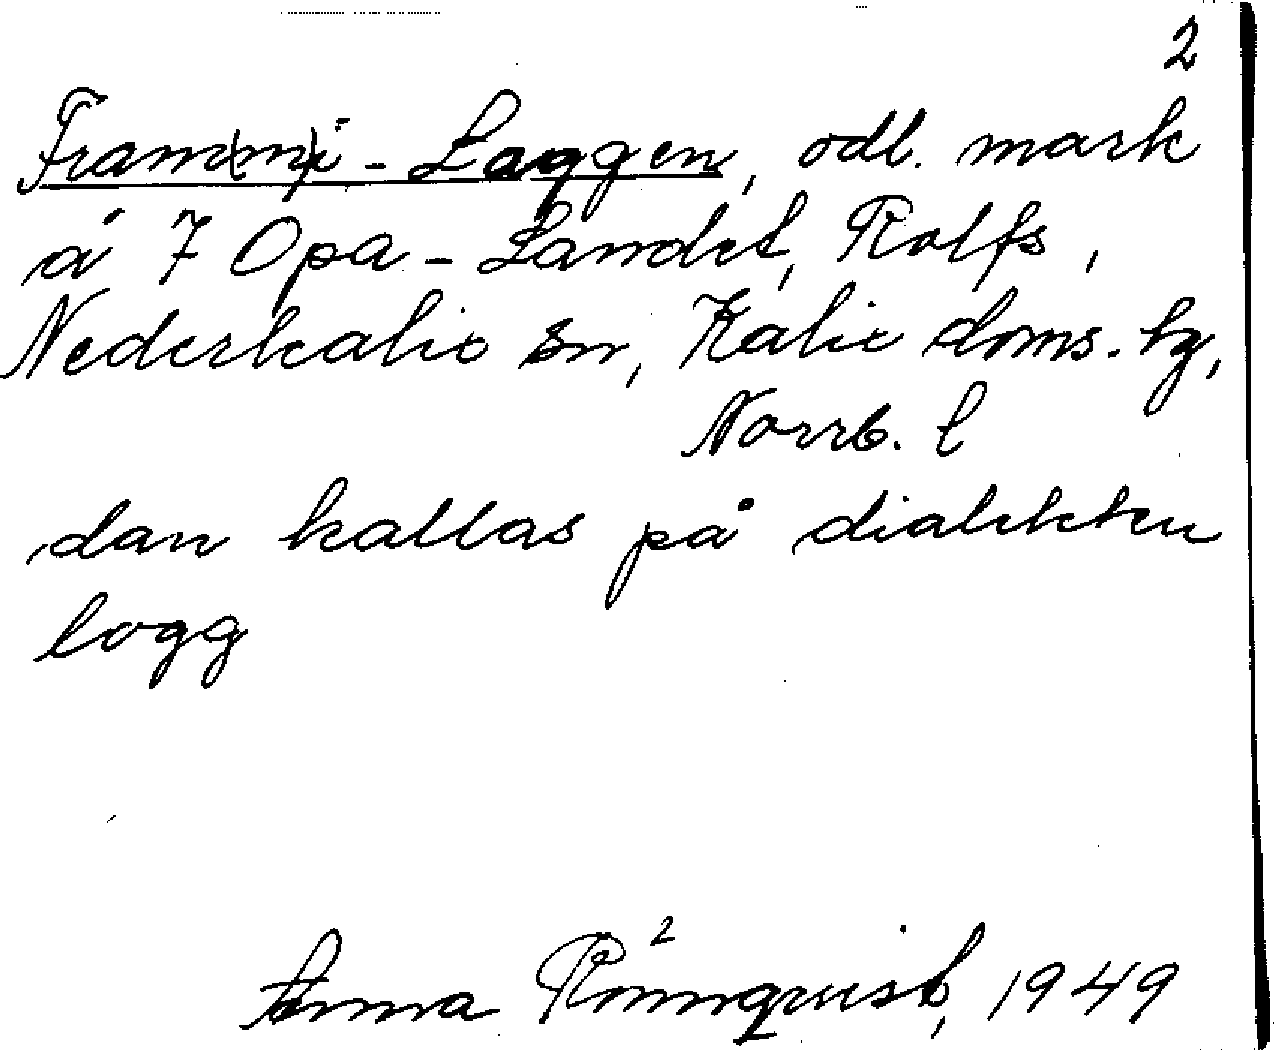 2
Fram(m)i-Laggen, odl. mark
å 7 Opa-Landet, Rolfs,
Nederkalix sn, Kalix doms. hg,
Norrb. l
dan kallas på dialekten
logg
Anna Rönnqvist, 1949